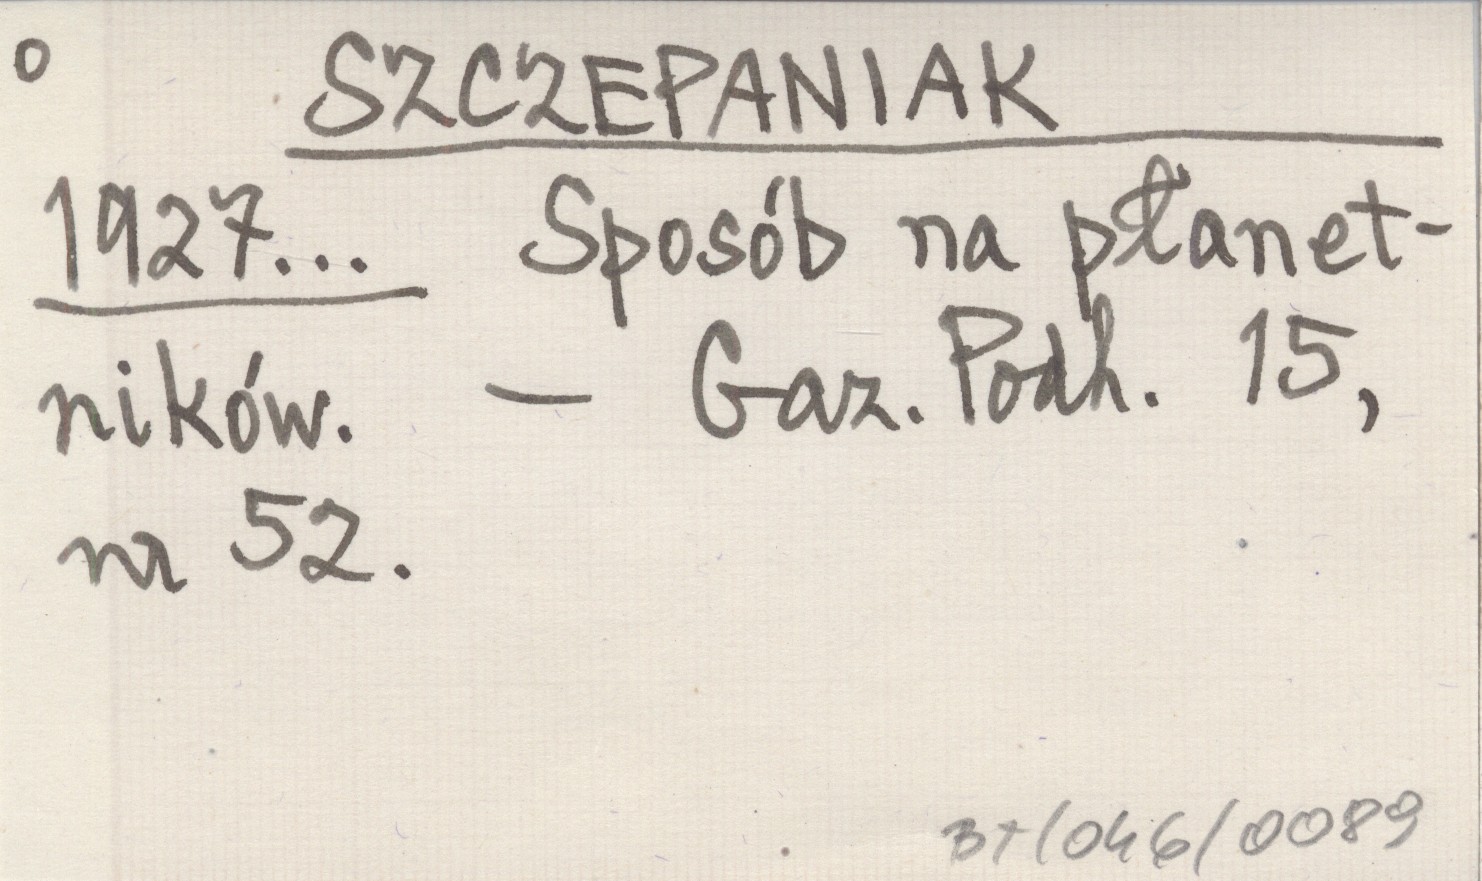 o SZCZEPANIAK
1927... Sposób na płanet-
ników. — Gaz. Podh. 15,
nr 52.
BT/046/0089